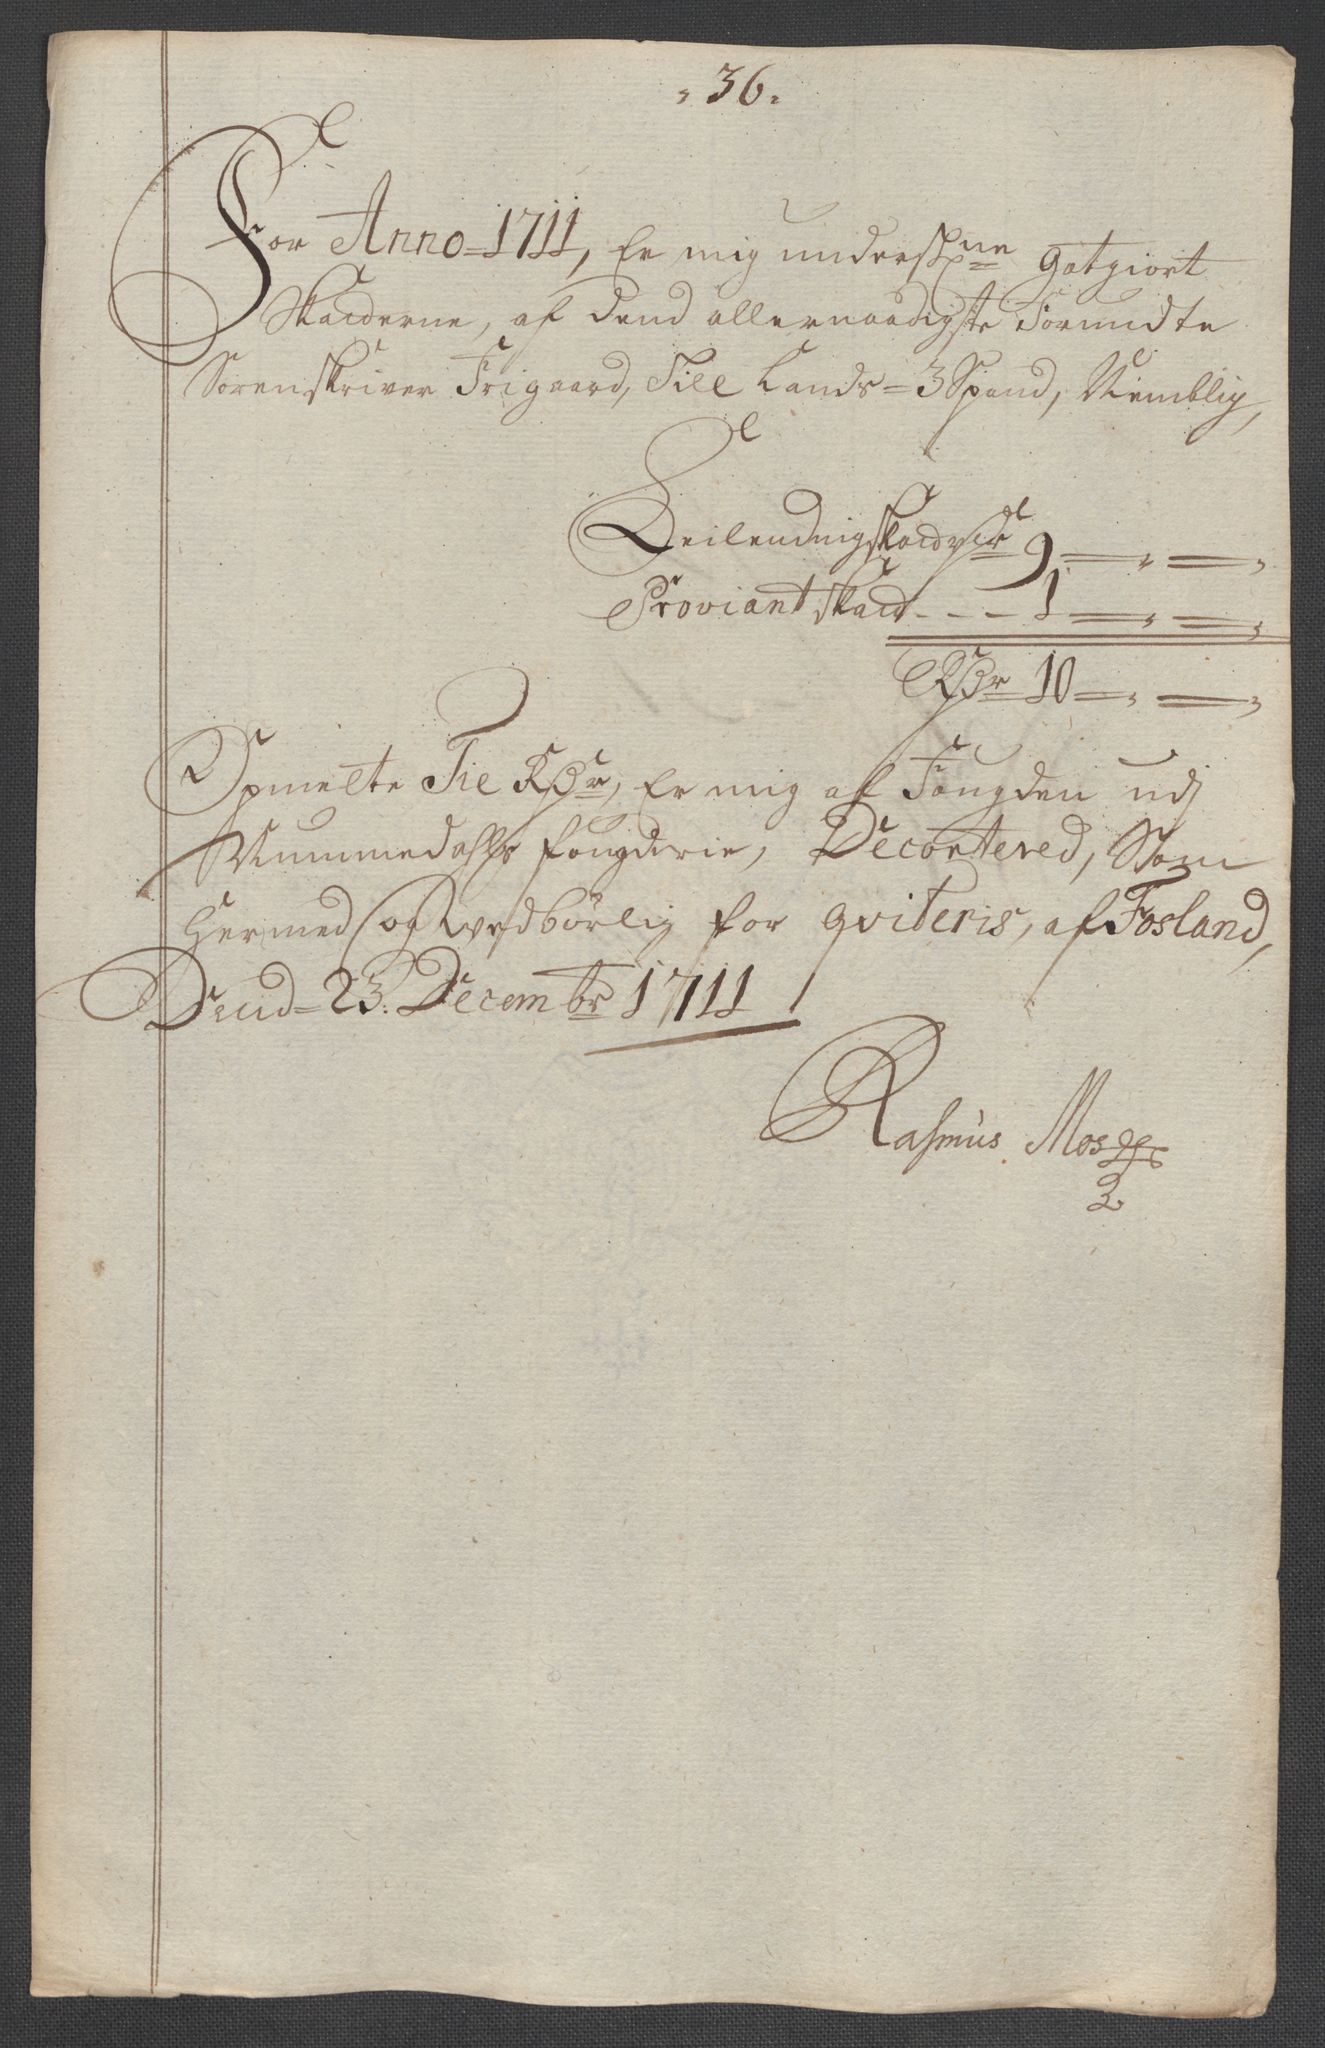 . 36.
For Anno 1711, Er mig underskrne gotgiort
Skatterne, af dend allernaadigste Forundte
Sorenskriver Frigaard, Till Lands = 3 Spand, Nemblig,
Leilendings skatt 9 = , = ,
Proviant skatt - - - 1 = , = ,
Rdr 10 = , = ,
Opmelte Tie Rdr, Er mig af Fougden udj
Nummedahls fougderie, Decorteret, Som
hermed og vedbørlig for qviteris, af Fosland,
Dend = 23. Decembr 1711
Rasmus